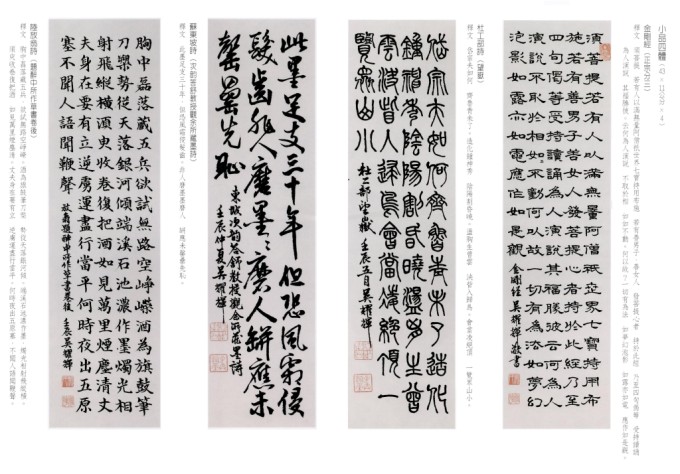 小品四體
金剛經
釋文 須菩提 若有人以滿無量阿僧祇世界七寶持用布施 若有善男子 善女人 發菩提心者 持於此經 乃至四句偈等 受持讀誦
為人演說 其福勝彼 云何為人演說 不取於相 如如不動 何以故 一切有為法 如夢幻泡影 如露亦如電 應作如是觀
須菩提若有人以滿無量阿僧祇世界七寶持用布
施若有善男子善女人發菩提心者持於此經乃至
四句偈等受持讀誦為人演說其福勝彼云何為人
演說不取於相如如不動何以故一切有為法如夢幻
泡影如露亦如電應作如是觀 金剛經吳耀輝敬書
杜工部詩（望嶽）
釋文 岱宗夫如何 齊魯青未了 造化鍾神秀 陰陽割昏曉 盪胸生曾雲 決眥入歸鳥 會當凌絕頂 一覽眾山小
岱宗夫如何齊魯青未了造化
鍾神秀陰陽割昏曉盪胸生曾
雲決眥入歸鳥會當凌絕頂一
覽眾山小 杜工部望嶽 壬辰五月吳耀輝
蘇東坡詩（次韵答舒教授觀余所藏墨詩）
釋文 此墨足支三十年 但恐風霜侵髮齒 非人磨墨墨磨人 缾應未罄罍先恥
此墨足支三十年但恐風霜侵
髮齒非人磨墨墨磨人缾應未
罄罍先恥 東坡次韵答舒教授觀余所藏墨詩
壬辰仲夏吳耀輝
陸放翁詩（題醉中所作草書卷後）
釋文 胸中磊落藏五兵 欲試無路空崢嶸 酒為旗鼓筆刀槊 勢從天落銀河傾 端溪石池濃作墨 燭光相射飛縱橫
須臾收卷復把酒 如見萬里煙塵清 丈夫身在要有立 逆虜運盡行當平 何時夜出五原塞 不聞人語聞鞭聲
胸中磊落藏五兵欲試無路空崢嶸酒為旗鼓筆
刀槊勢從天落銀河傾端溪石池濃作墨燭光相
射飛縱橫須臾收卷復把酒如見萬里煙塵清丈
夫身在要有立逆虜運盡行當平何時夜出五原
塞不聞人語聞鞭聲 放翁題醉中所作草書卷後 壬辰吳耀輝